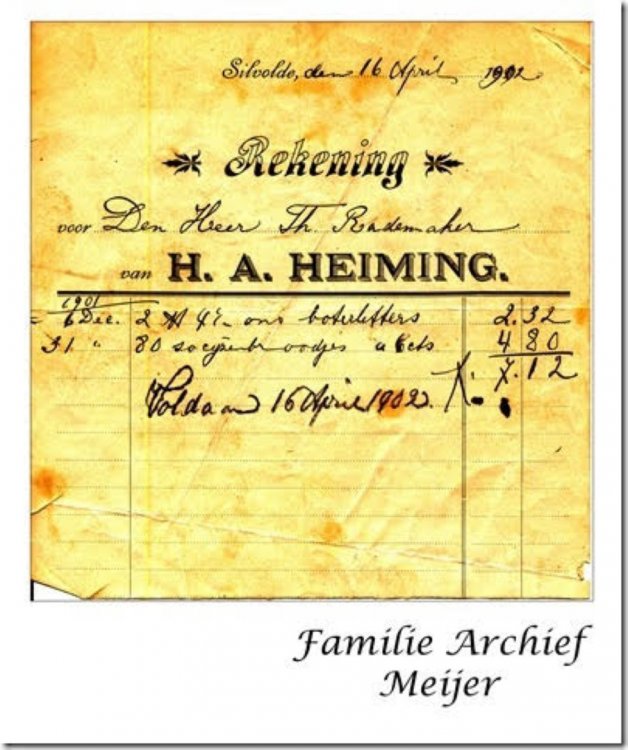 Silvolde, den 16 April 1902
Rekening
voor Den Heer Th. Rademaker
van H. A. HEIMING.
1901
6 Dec. 2 ons boterletters 2.32
31 " 80 a 6 cts 4 80
7.12
Voldaan 16 April 1902.
Familie Archief
Meijer